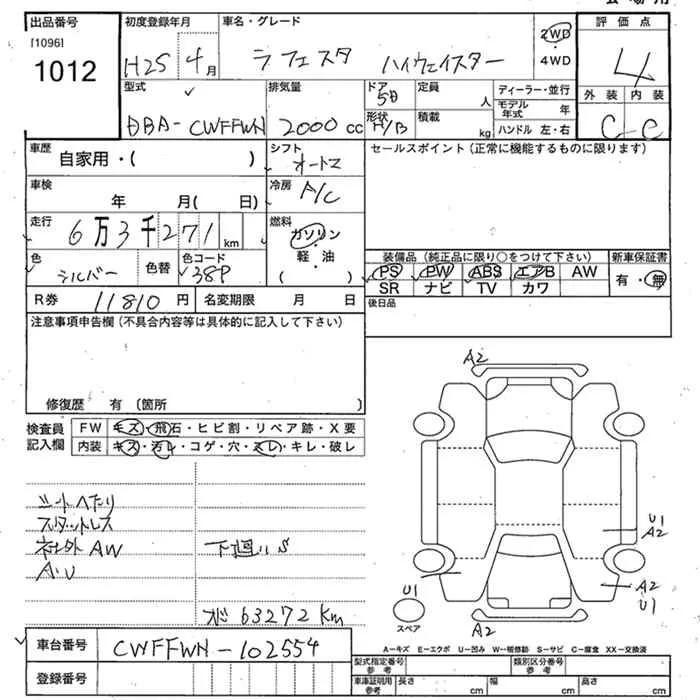 出品番号 初度登録年月 車名・グレード 評価点
[1096]
1012
H25 4月 ラフェスタ ハイウェイスター 2WD
4WD
4
型式 排気量 ドア 定員 ディーラー・並行 外装 内装
DBA-CWFFWN 2000cc 5D 人 モデル年式 年 C-C
形状 H/B 積載 kg ハンドル 左・右
車歴 シフト セールスポイント(正常に機能するものに限ります)
自家用・( ) オートマ
車検 冷房
年 月( 日) A/C
走行 燃料
6万3千271km ガソリン・軽油
色 色コード ( ) 装備品(純正品に限り○をつけて下さい) 新車保証書
シルバー 色替 38P PS PW ABS エアB AW 有・無
R券 11810円 名変期限 月 日 SR ナビ TV カワ
注意事項申告欄(不具合内容等は具体的に記入して下さい) 後日品
修復歴 有(箇所 )
検査員記入欄 FW キズ・飛石・ヒビ割・リペア跡・X要
内装 キズ・汚レ・コゲ・穴・スレ・キレ・破レ
A2
シートへたり
スタットレス
社外AW 下廻りS
U1
A2
A2
U1
U1
スペア
A2
メ 63272Km
A-キズ E-エクボ U-凹み W-補修跡 S-サビ C-腐食 XX-交換済
車台番号 CWFFWN-102554
登録番号
型式指定番号 参考 類別区分番号 参考
車庫証明用 参考 長さ cm 幅 cm 高さ cm